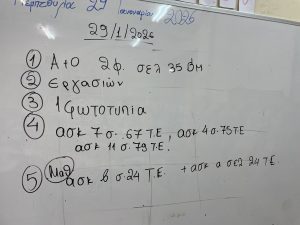 29 Ιανουαρίου 2026
29/1/2026
① Α+Ο 2φ. σελ 35 Θμ
② Εργασιών
③ 1 φωτοτυπία
④ ασκ 7 σ. 67 Τ.Ε., ασκ 4 σ. 75 Τ.Ε
ασκ 11 σ. 79 Τ.Ε.
⑤ Μαθ ασκ b σ. 24 Τ.Ε. + ασκ α σελ 24 Τ.Ε.